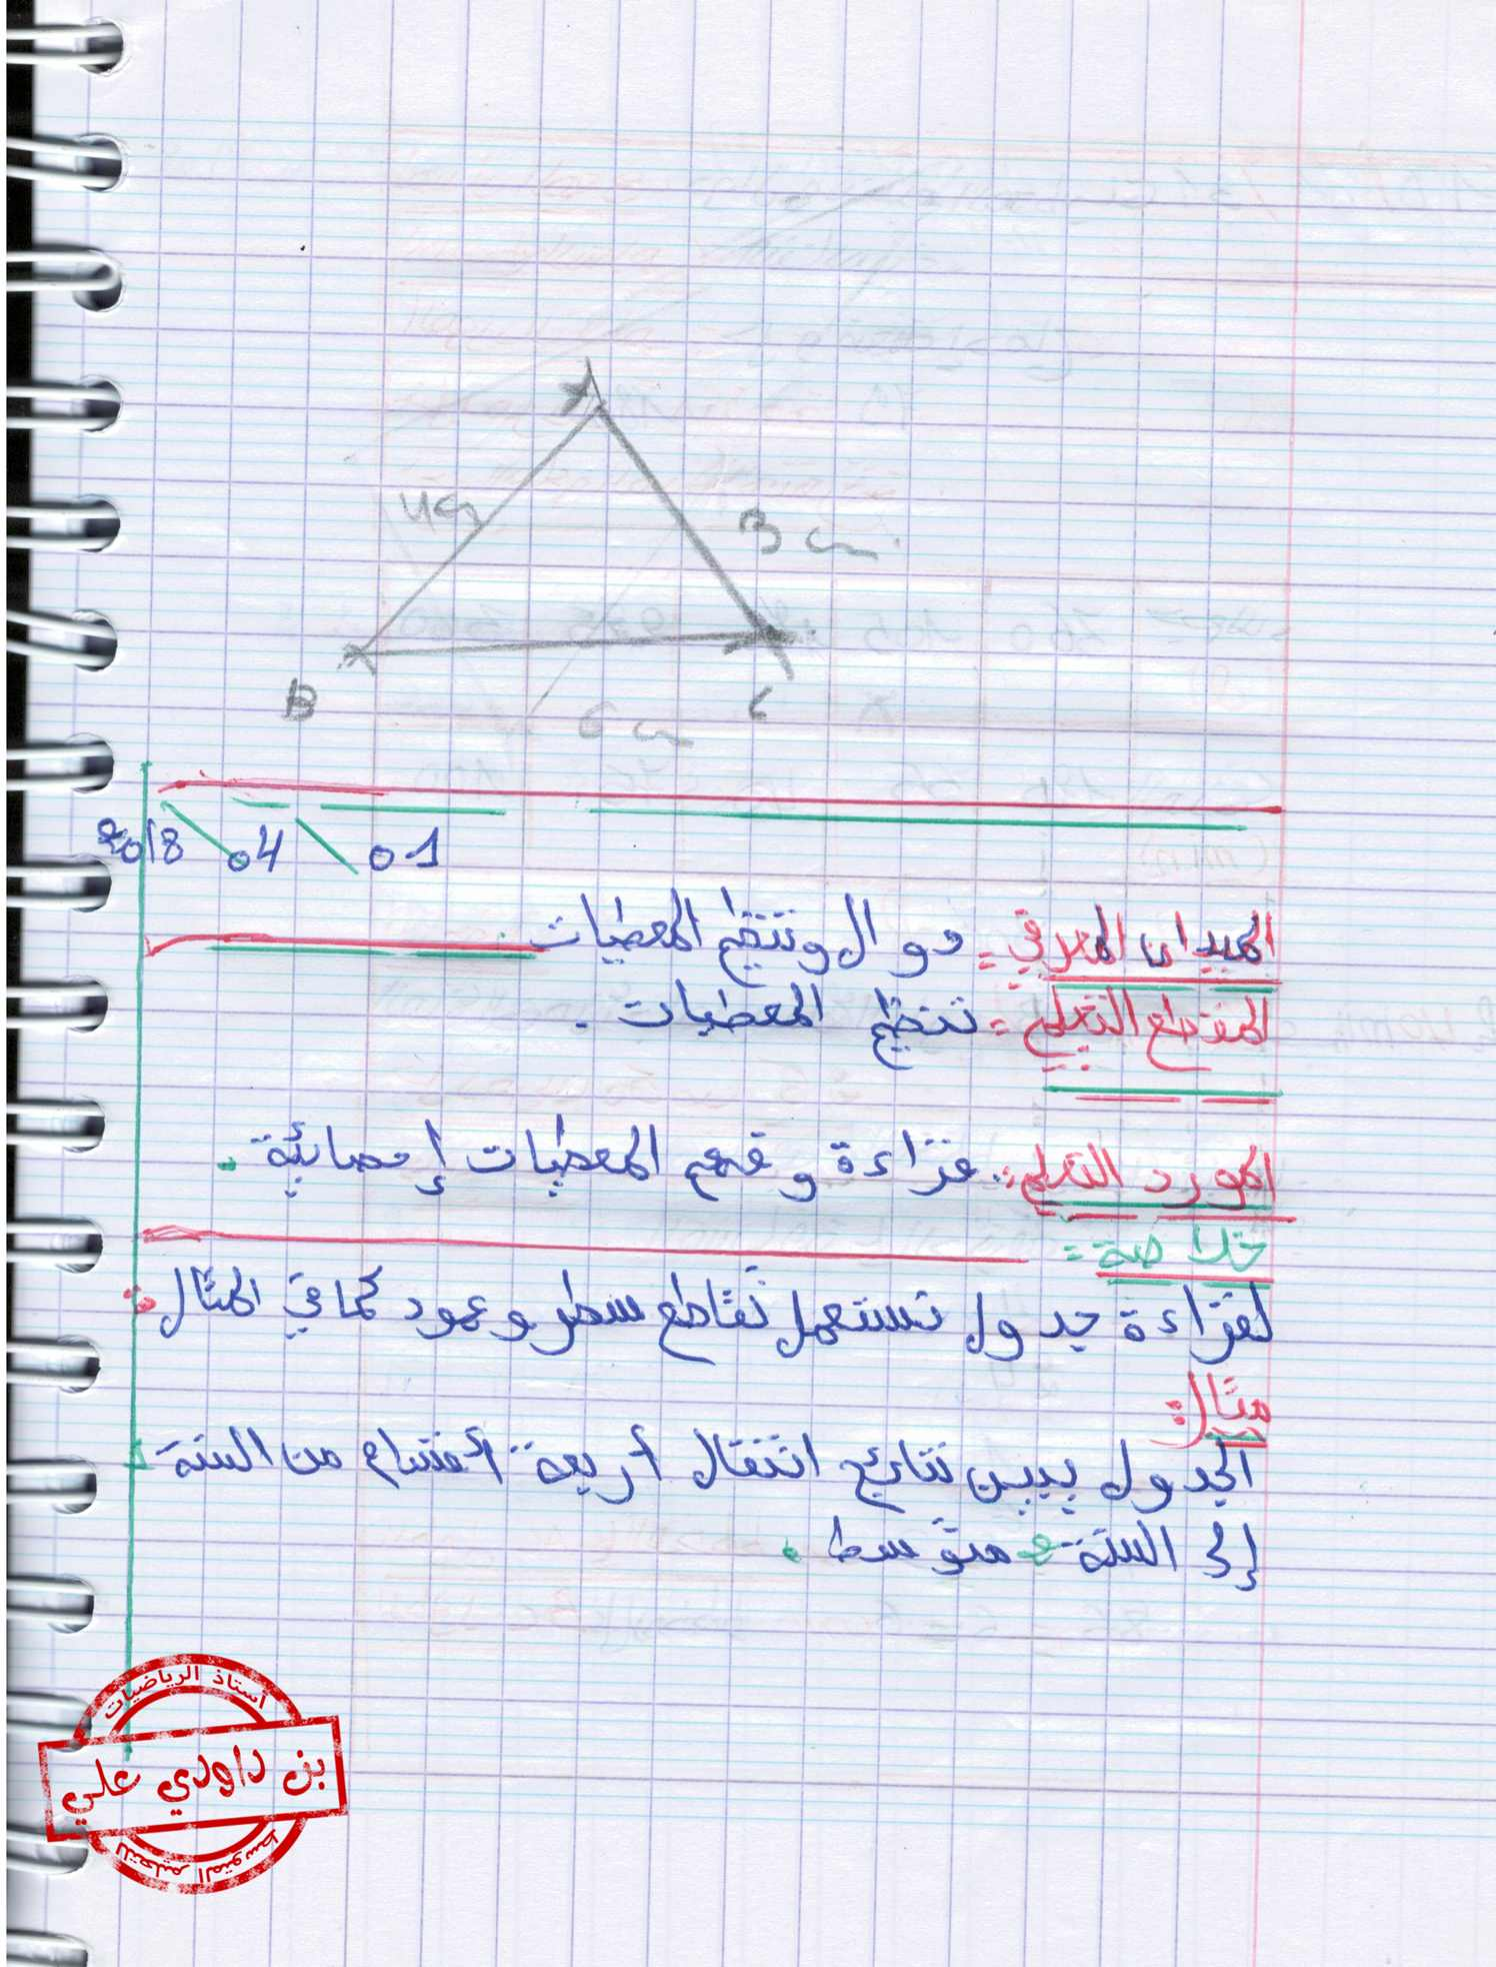 A
4cm
3 cm
B
C
6 cm
2018 \ 04 \ 01
الميدان المعرفي = دوال وتنظيم المعطيات.
المقطع التعلمي = تنظيم المعطيات.
المورد التعلمي: قراءة وفهم المعطيات إحصائية.
خلاصة =
لقراءة جدول نستعمل تقاطع سطر وعمود كما في المثال:
مثال:
الجدول يبين نتائج انتقال أربعة أقسام من السنة
إلى السنة متوسط.
أستاذ الرياضيات
بن داودي علي
للتعليم المتوسط